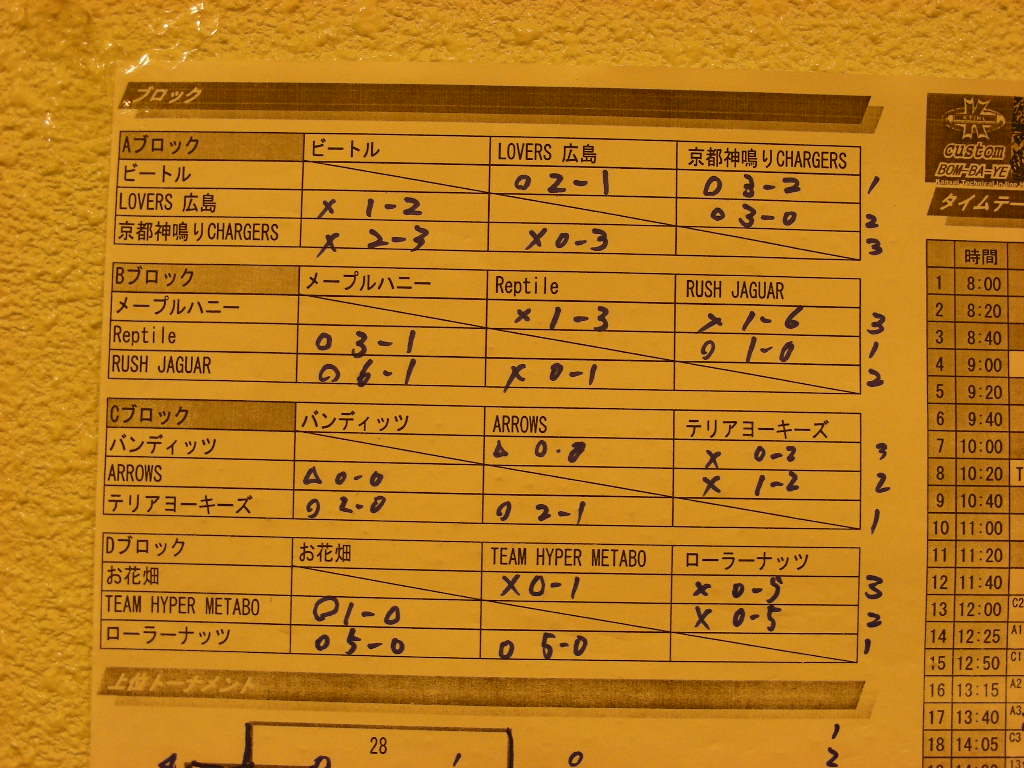 ブロック
Aブロック ビートル LOVERS 広島 京都神鳴りCHARGERS
ビートル o 2-1 o 3-2 1
LOVERS 広島 × 1-2 o 3-0 2
京都神鳴りCHARGERS × 2-3 × 0-3 3
Bブロック メープルハニー Reptile RUSH JAGUAR
メープルハニー × 1-3 × 1-6 3
Reptile o 3-1 o 1-0 1
RUSH JAGUAR o 6-1 × 0-1 2
Cブロック バンディッツ ARROWS テリアヨーキーズ
バンディッツ △ 0-0 × 0-2 3
ARROWS △ 0-0 × 1-2 2
テリアヨーキーズ o 2-0 o 2-1 1
Dブロック お花畑 TEAM HYPER METABO ローラーナッツ
お花畑 × 0-1 × 0-5 3
TEAM HYPER METABO o 1-0 × 0-5 2
ローラーナッツ o 5-0 o 5-0 1
上位トーナメント
28
1
2
custom
BOM-BA-YE
タイムテー
時間
1 8:00
2 8:20
3 8:40
4 9:00
5 9:20
6 9:40
7 10:00
8 10:20 T
9 10:40
10 11:00
11 11:20
12 11:40
13 12:00 C2
14 12:25 A1
15 12:50 C1
16 13:15 A2
17 13:40 A3
18 14:05 C3